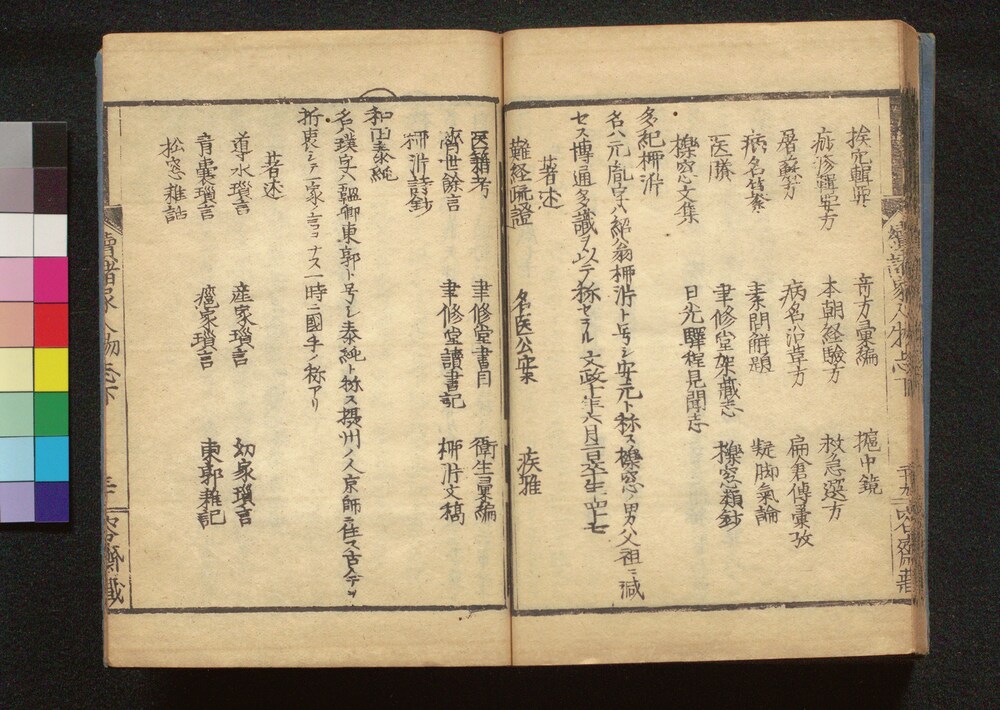 挨穴輯畧 奇方彙編 樞中鏡
麻疹輯要方 本朝経験方 救急選方
屠蘓方 病名沿革方 扁倉傳彙攷
病名纂 素問解題 脚氣論
医賸 聿修堂架蔵志 櫟窓類鈔
櫟窓文集 日光驛程見聞志
多紀柳沜
名ハ元胤字ハ紹翁柳沜ト号シ安元ト称ス櫟窓ノ男父祖ニ減
セス博通多識ヲ以テ称セラル文政十年六月三日卒生四十七
著述
難経疏證 名医公案 疾雅
医籍考 聿修堂書目 衛生彙編
済世餘言 聿修堂讀書記 柳沜文稿
柳沜詩鈔
和田泰純
名ハ璞字ハ韞卿東郭ト号シ泰純ト称ス摂州ノ人京師ニ住ス古今ヲ
折衷シテ一家ノ言ヲナス一時ニ國手ノ称アリ
著述
導水瑣言 産家瑣言 幼家瑣言
青嚢瑣言 瘡家瑣言 東郭雜記
松窓雜話
續諸家人物志下